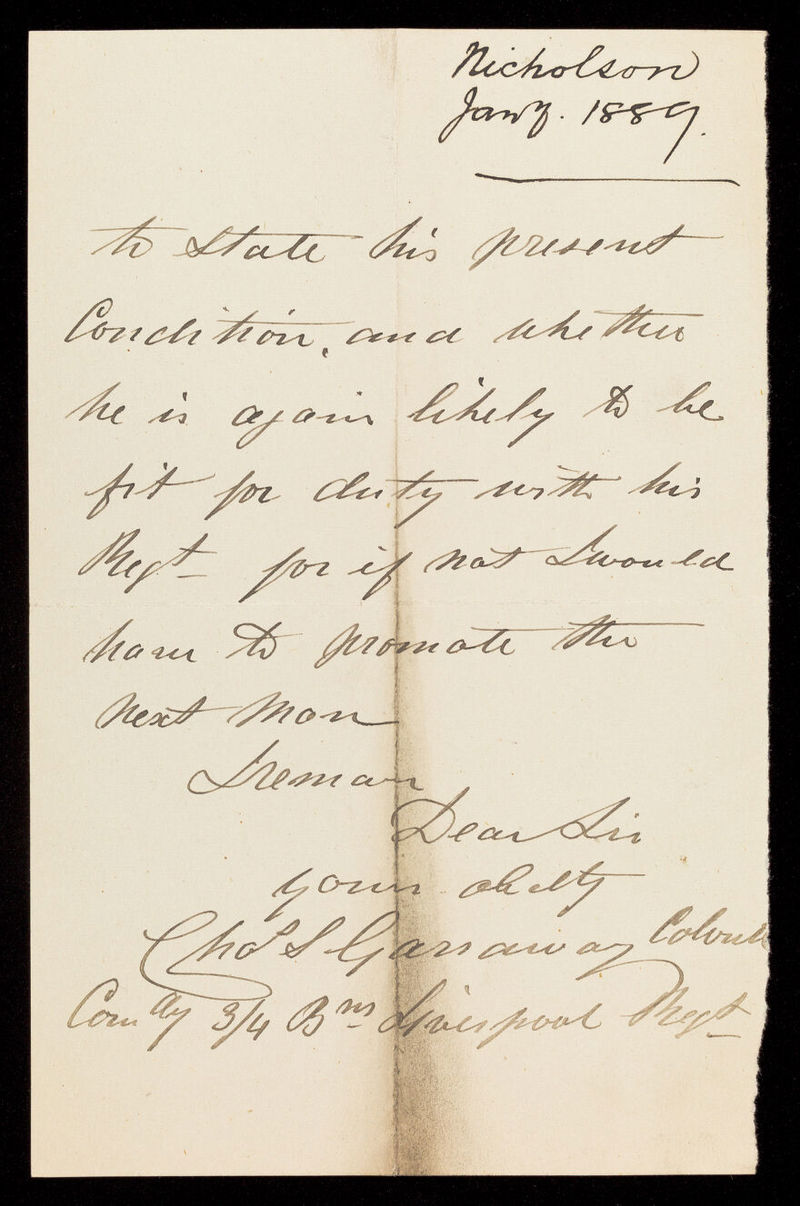 Nicholson
Jany. 1889.
to state his present
Condition, and whether
he is again likely to be
fit for duty with his
Regt for if not I would
have to promote the
next man
I remain
Dear Sir
yours obedtly
Chas S Garraway Colonel
Comdg 3/4 Bns Liverpool Regt